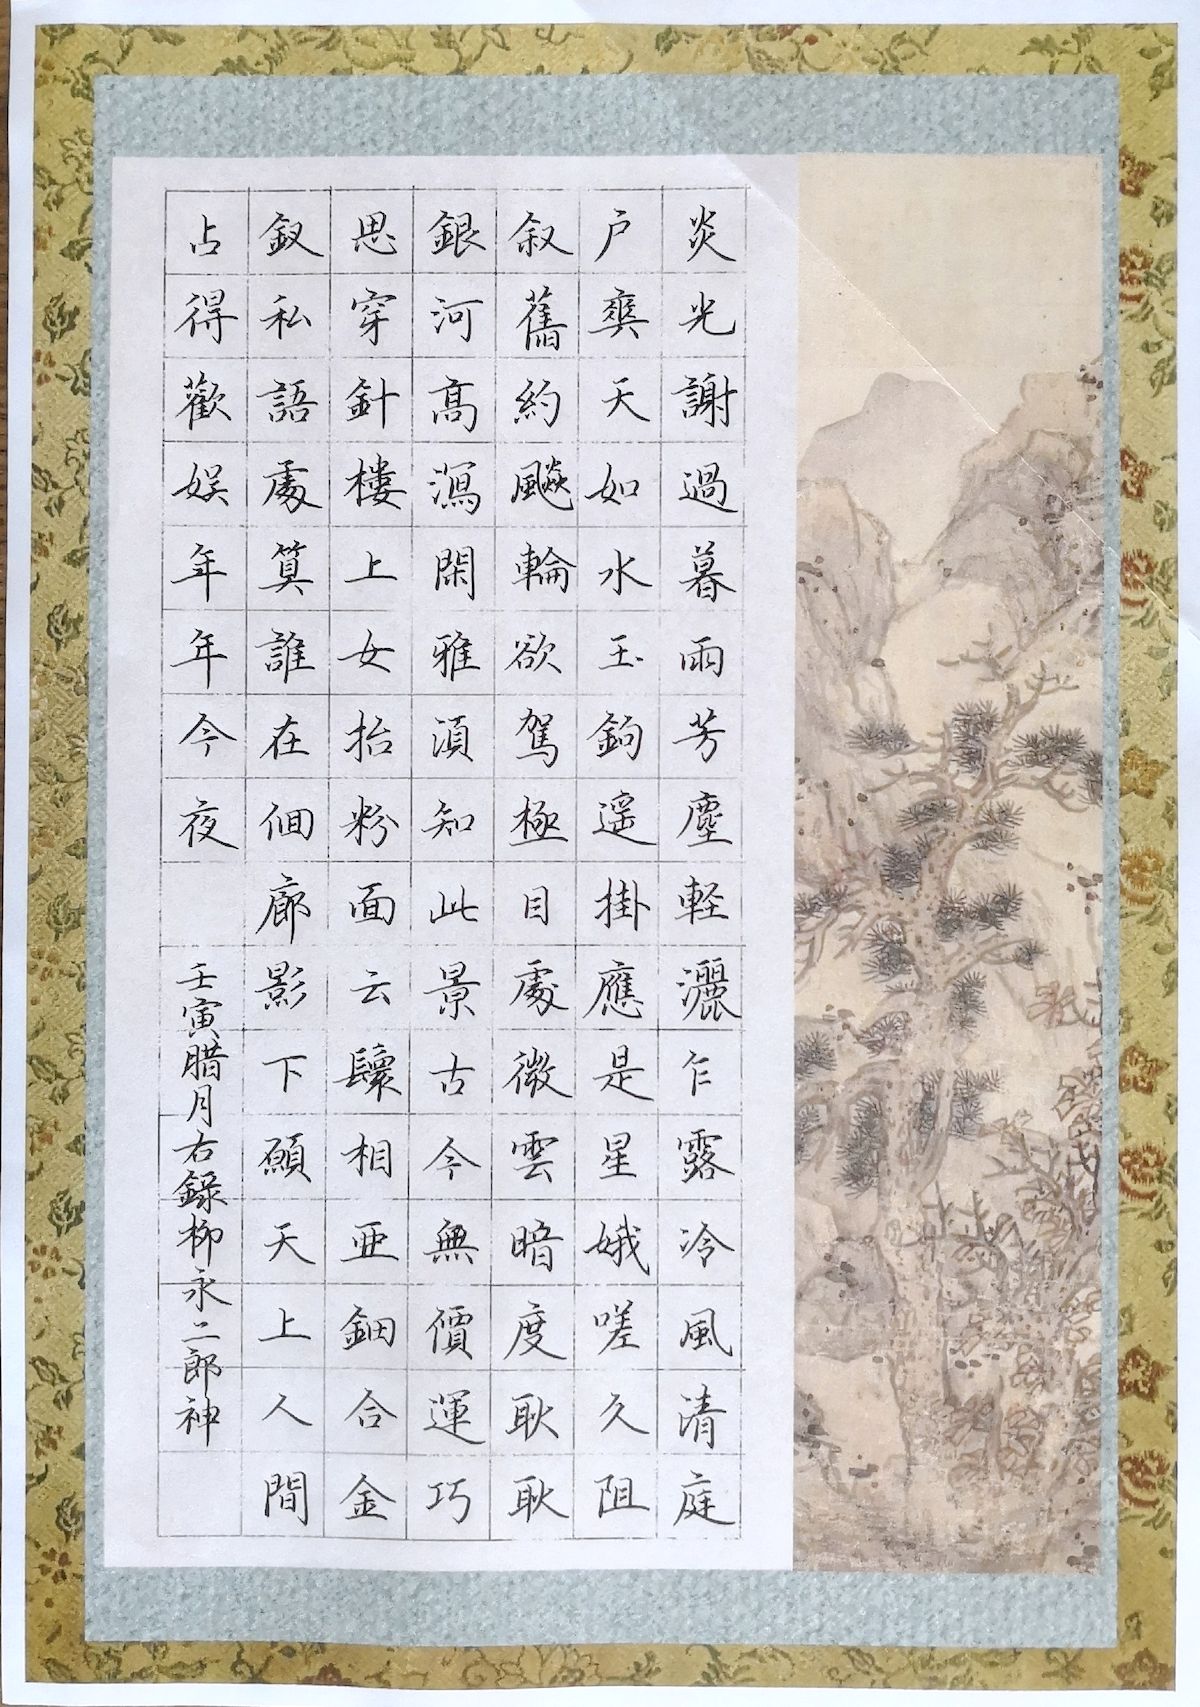 炎光謝過暮雨芳塵軽灑乍露冷風清庭
户爽天如水玉鉤遥掛應是星娥嗟久阻
叙舊約飈輪欲駕極目處微雲暗度耿耿
銀河高瀉閑雅須知此景古今無價運巧
思穿針樓上女抬粉面云鬟相亜鈿合金
釵私語處算誰在佪廊影下願天上人間
占得歡娱年年今夜
壬寅腊月右録柳永二郎神